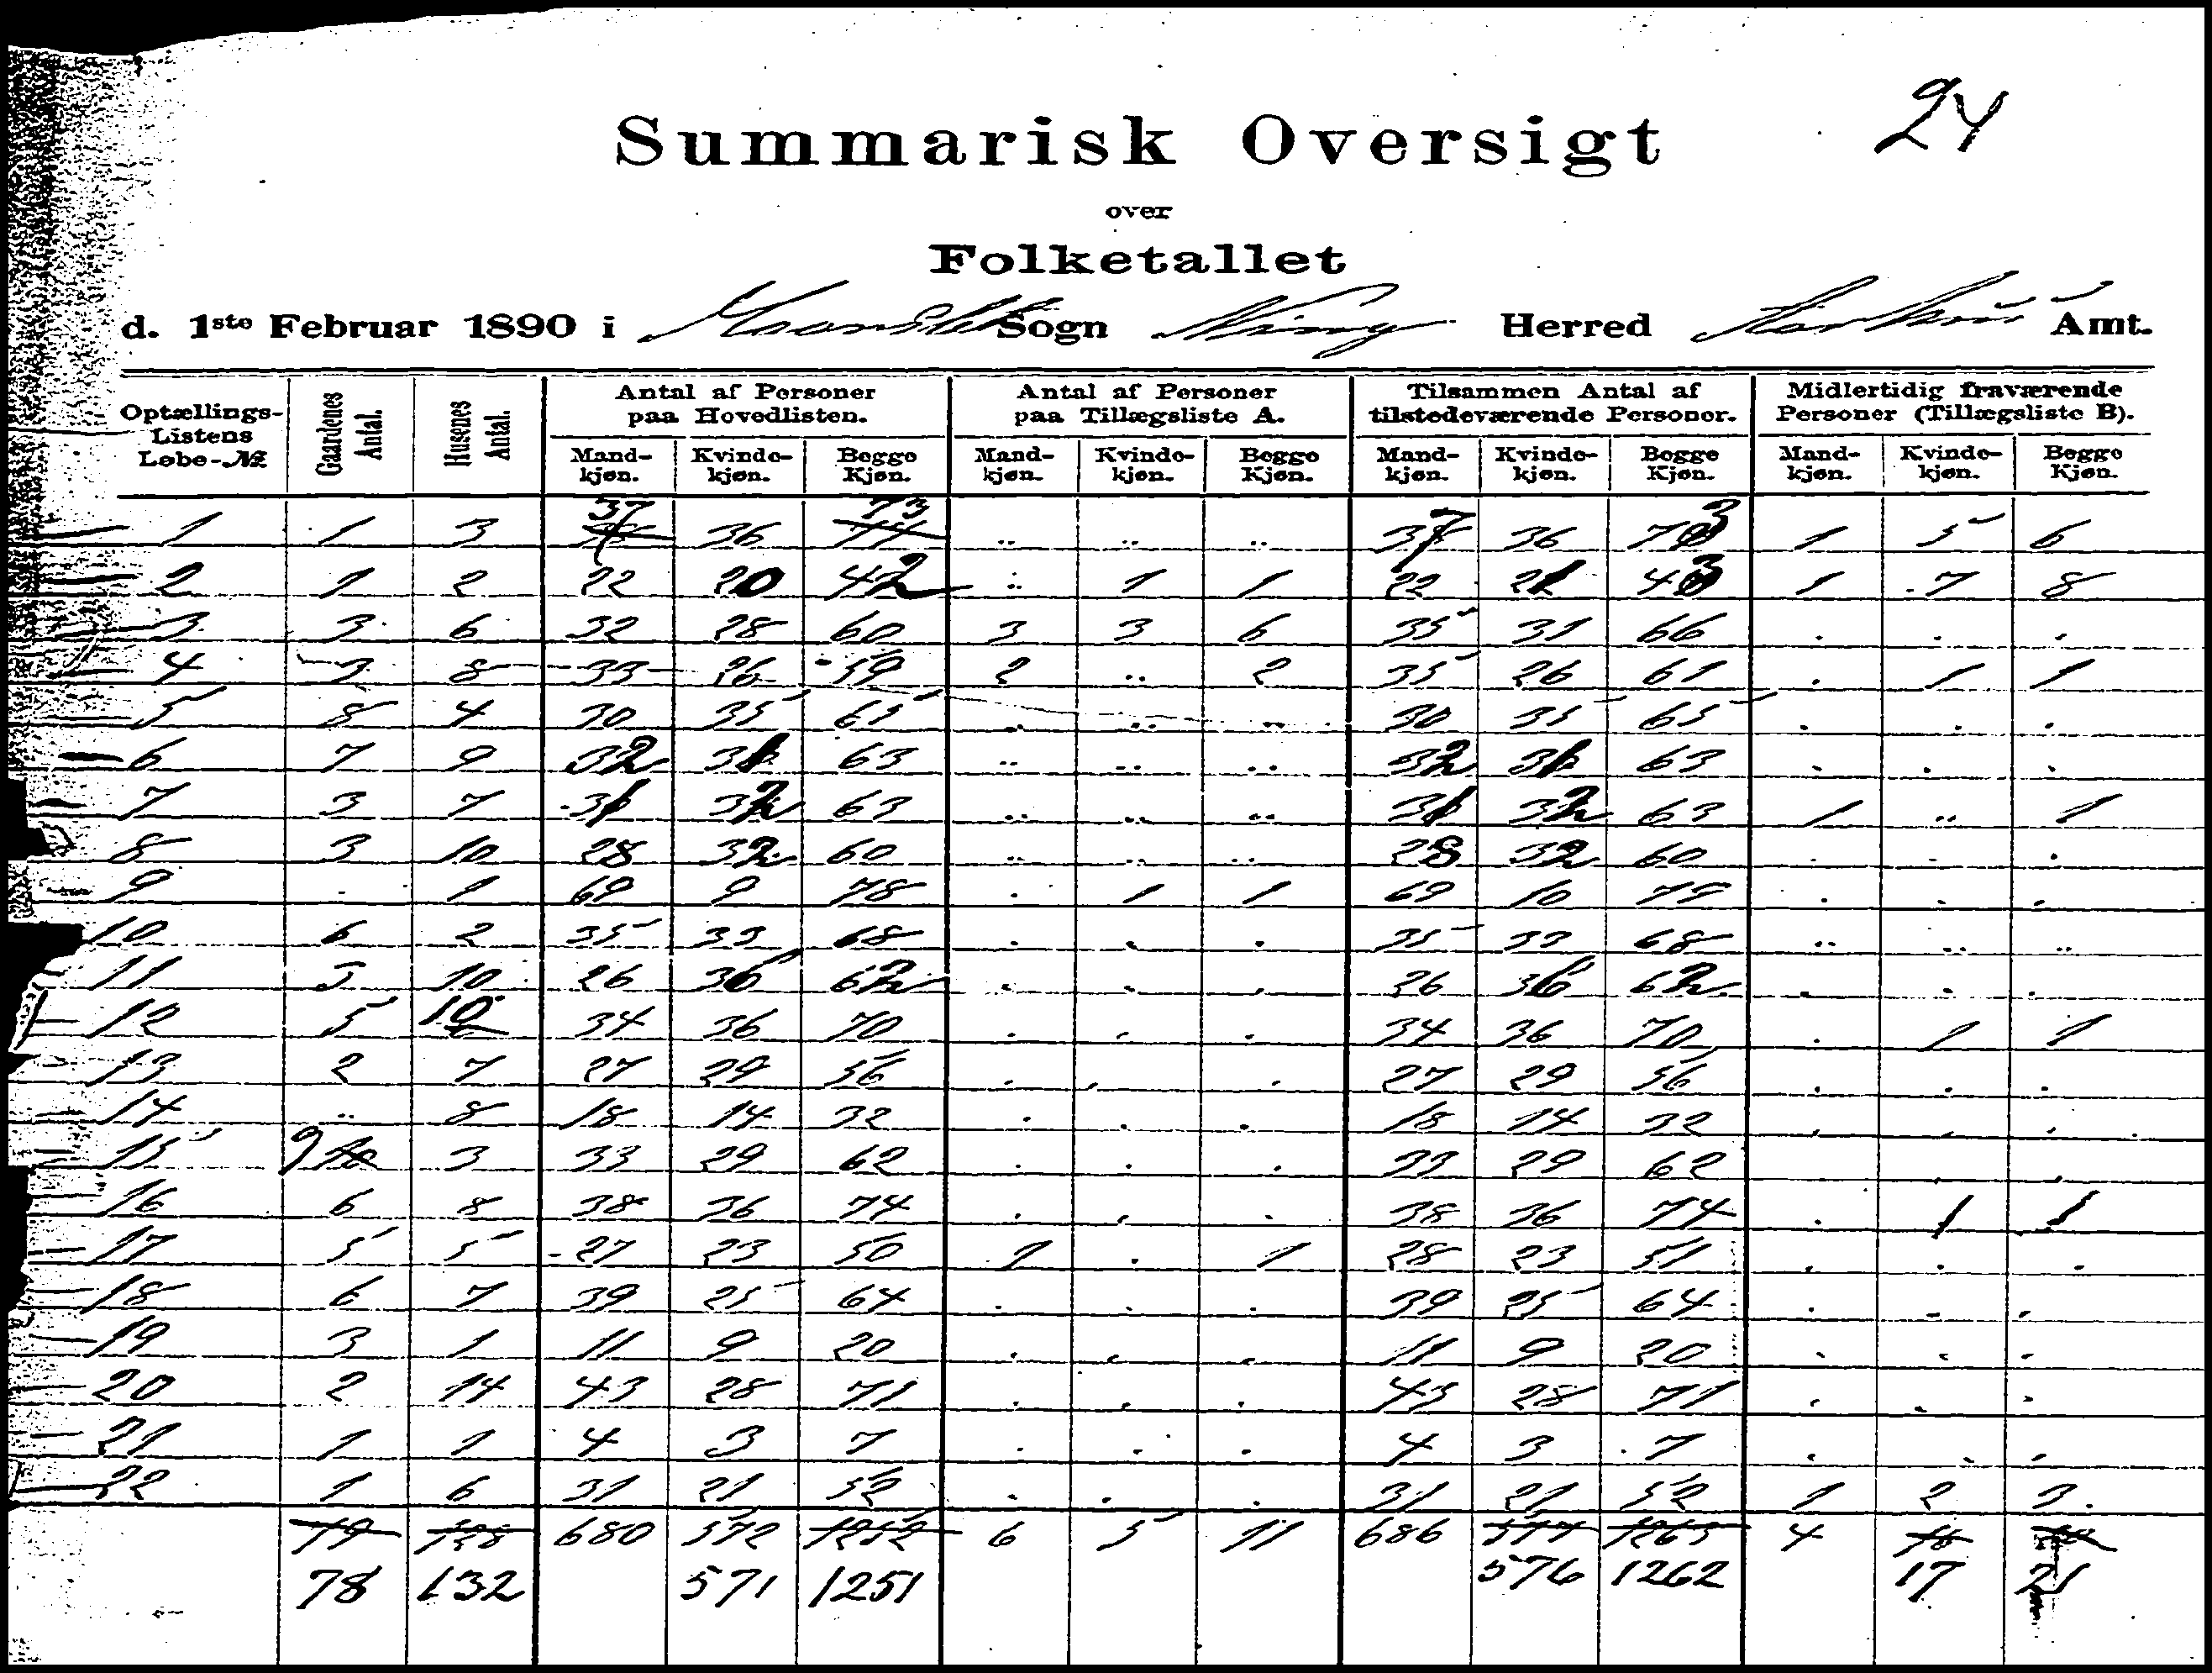 24
Summarisk Oversigt
over
Folketallet
d. 1ste Februar 1890 i Maarslet Sogn Ning Herred Aarhuus Amt.
Optællings-Listens Løbe-№ Gaardenes Antal. Husenes Antal. Antal af Personer paa Hovedlisten. Antal af Personer paa Tillægsliste A. Tilsammen Antal af tilstedeværende Personer. Midlertidig fraværende Personer (Tillægsliste B).
Mand-kjøn. Kvinde-kjøn. Begge Kjøn. Mand-kjøn. Kvinde-kjøn. Begge Kjøn. Mand-kjøn. Kvinde-kjøn. Begge Kjøn. Mand-kjøn. Kvinde-kjøn. Begge Kjøn.
1 1 3 37 36 73 .. .. .. 37 36 73 1 5 6
2 1 2 22 20 42 .. 1 1 22 21 43 1 7 8
3 3 6 32 28 60 3 3 6 35 31 66 . . .
4 3 8 33 26 59 2 .. 2 35 26 61 . 1 1
5 8 4 30 35 65 .. .. .. 30 35 65 . . .
6 7 9 32 31 63 .. .. .. 32 31 63 . . .
7 3 7 31 32 63 .. .. .. 31 32 63 1 .. 1
8 3 10 28 32 60 .. .. .. 28 32 60 . . .
9 . 1 69 9 78 . 1 1 69 10 79 . . .
10 6 2 35 33 68 . . . 35 33 68 .. .. ..
11 3 10 26 36 62 . . . 26 36 62 . . .
12 5 10 34 36 70 . . . 34 36 70 . 1 1
13 2 7 27 29 56 . . . 27 29 56 . . .
14 .. 8 18 14 32 . . . 18 14 32 . . .
15 9 3 33 29 62 . . . 33 29 62 . . .
16 6 8 38 36 74 . . . 38 36 74 . 1 1
17 5 5 27 23 50 1 . 1 28 23 51 . . .
18 6 7 39 25 64 . . . 39 25 64 . . .
19 3 1 11 9 20 . . . 11 9 20 . . .
20 2 14 43 28 71 . . . 43 28 71 . . .
21 1 1 4 3 7 . . . 4 3 7 . . .
22 1 6 31 21 52 . . . 31 21 52 1 2 3
79 128 680 572 1252 6 5 11 686 577 1263 4 18
78 132 571 1251 576 1262 17 21